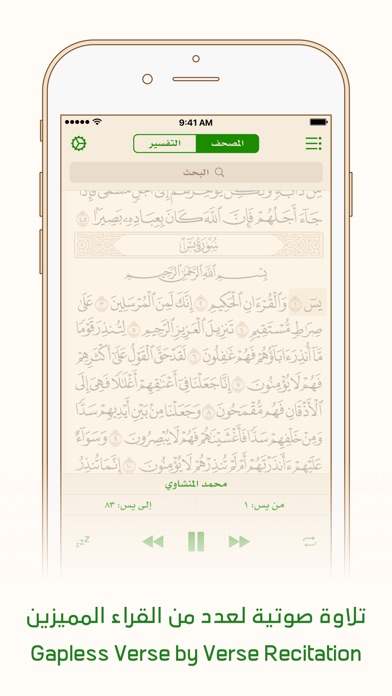 9:41 AM
المصحف
التفسير
البحث
جَآءَ أَجَلُهُمْ فَإِنَّ ٱللَّهَ كَانَ بِعِبَادِهِۦ بَصِيرًۢا ٤٥
سُورَةُ يسٓ
بِسْمِ ٱللَّهِ ٱلرَّحْمَٰنِ ٱلرَّحِيمِ
يسٓ ١ وَٱلْقُرْءَانِ ٱلْحَكِيمِ ٢ إِنَّكَ لَمِنَ ٱلْمُرْسَلِينَ ٣ عَلَىٰ
صِرَٰطٍ مُّسْتَقِيمٍ ٤ تَنزِيلَ ٱلْعَزِيزِ ٱلرَّحِيمِ ٥ لِتُنذِرَ قَوْمًا
مَّآ أُنذِرَ ءَابَآؤُهُمْ فَهُمْ غَٰفِلُونَ ٦ لَقَدْ حَقَّ ٱلْقَوْلُ عَلَىٰٓ أَكْثَرِهِمْ
فَهُمْ لَا يُؤْمِنُونَ ٧ إِنَّا جَعَلْنَا فِىٓ أَعْنَٰقِهِمْ أَغْلَٰلًا فَهِىَ إِلَى
ٱلْأَذْقَانِ فَهُم مُّقْمَحُونَ ٨ وَجَعَلْنَا مِنۢ بَيْنِ أَيْدِيهِمْ سَدًّا
وَمِنْ خَلْفِهِمْ سَدًّا فَأَغْشَيْنَٰهُمْ فَهُمْ لَا يُبْصِرُونَ ٩ وَسَوَآءٌ
عَلَيْهِمْ ءَأَنذَرْتَهُمْ أَمْ لَمْ تُنذِرْهُمْ لَا يُؤْمِنُونَ ١٠ إِنَّمَا تُنذِرُ
محمد المنشاوي
من يس: ١
إلى يس: ٨٣
zzz
تلاوة صوتية لعدد من القراء المميزين
Gapless Verse by Verse Recitation